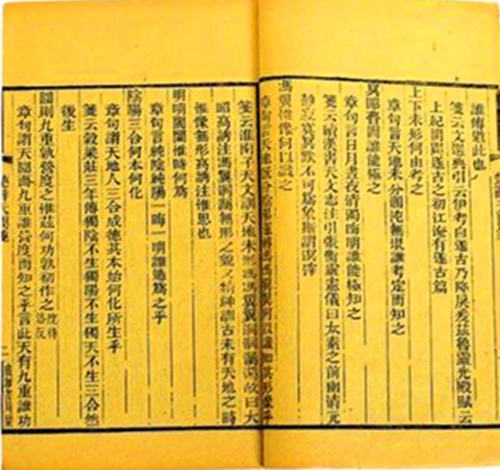 誰傳道此也
箋云文選典引云伊考自邃古乃降戾爰茲魯靈光殿賦云
上紀開闢邃古之初江淹有邃古篇
上下未形何由考之
章句言天地未分溷沌無垠誰考定而知之
冥昭瞢闇誰能極之
章句言日月晝夜清濁晦明誰能極知之
箋云續漢書天文志注引張衡靈憲曰太素之前幽清元
靜寂寞冥默不可為象斯謂溟涬
馮翼惟像何以識之
章句言天地既分陰陽運轉馮馮翼翼何以識知其形像乎
箋云淮南子天文訓天地未形馮馮翼翼洞洞灟灟故曰大
昭高誘注馮翼洞灟無形之貌又精神訓古未有天地之時
惟像無形高誘注惟思也
明明闇闇惟時何為
章句言純陰純陽一晦一明誰造為之乎
陰陽三合何本何化
章句謂天地人三合成德其本始何化所生乎
箋云穀梁莊三年傳獨陰不生獨陽不生獨天不生三合然
後生
圜則九重孰營度之惟茲何功孰初作之度待洛反
章句謂天圜而九重誰營度而知之乎言此天有九重誰功